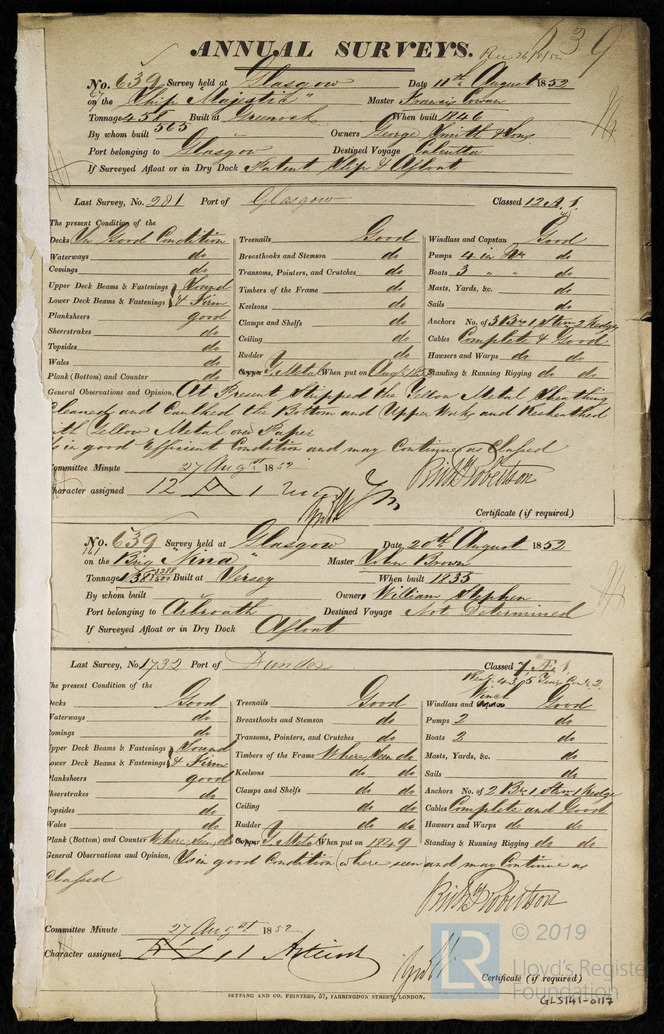 ANNUAL SURVEYS. Rec 26/8/52 639
No. 639 Survey held at Glasgow Date 11th August 1852
on the Ship "Majestic" Master Francis Cowan
Tonnage 458 Built at Greenock When built 1846
565
By whom built " Owners George Smith & Sons
Port belonging to Glasgow Destined Voyage Calcutta
If Surveyed Afloat or in Dry Dock Patent Slip & Afloat
Last Survey, No. 281 Port of Glasgow Classed 12 A.1.
The present Condition of the
Decks In Good Condition Treenails Good Windlass and Capstan Good
Waterways do Breasthooks and Stemson do Pumps 4 in No. do
Comings do Transoms, Pointers, and Crutches do Boats 3 " " do
Upper Deck Beams & Fastenings } Sound Timbers of the Frame do Masts, Yards, &c. do
Lower Deck Beams & Fastenings } & Firm Keelsons do Sails do
Planksheers good Clamps and Shelfs do Anchors No. of 3 Br 1 Strm 2 Kedge
Sheerstrakes do Ceiling do Cables Complete & Good
Topsides do Rudder do Hawsers and Warps do do
Wales do Copper Y. Metal When put on Augt 1852 Standing & Running Rigging do do
Plank (Bottom) and Counter do
General Observations and Opinion, At Present Stripped the Yellow Metal Sheathing
Cleaned and Caulked the Bottom and Upper Works and Resheathed
with Yellow Metal over Paper
Is in good Efficient Condition and may Continue as Classed
Committee Minute 27 Augst 1852 Richd Robertson
Character assigned 12 A 1
Certificate (if required)
No. 639 Survey held at Glasgow Date 20th August 1852
on the Brig "Nina" Master John Brown
Tonnage 138 Built at Jersey When built 1835
By whom built " Owners William Stephen
Port belonging to Arbroath Destined Voyage Not Determined
If Surveyed Afloat or in Dry Dock Afloat
Last Survey, No. 1732 Port of Dundee Classed Æ 1
The present Condition of the
Decks Good Treenails Good Windlass and Winch Good
Waterways do Breasthooks and Stemson do Pumps 2 do
Comings do Transoms, Pointers, and Crutches do Boats 2 do
Upper Deck Beams & Fastenings } Sound Timbers of the Frame Where Seen do Masts, Yards, &c. do
Lower Deck Beams & Fastenings } & Firm Keelsons do do Sails do
Planksheers good Clamps and Shelfs do do Anchors No. of 2 Br 1 Strm 1 Kedge
Sheerstrakes do Ceiling do do Cables Complete and Good
Topsides do Rudder do do Hawsers and Warps do do
Wales do Copper Y. Metal When put on 1849 Standing & Running Rigging do do
Plank (Bottom) and Counter Where Seen do
General Observations and Opinion, Is in good Condition (where seen and may Continue as
Classed
Richd Robertson
Committee Minute 27 Augst 1852
Character assigned
Certificate (if required)
SEYFANG AND CO. PRINTERS, 57, FARRINGDON STREET, LONDON.
LR © 2019
Lloyd's Register
Foundation
GLS141-0117